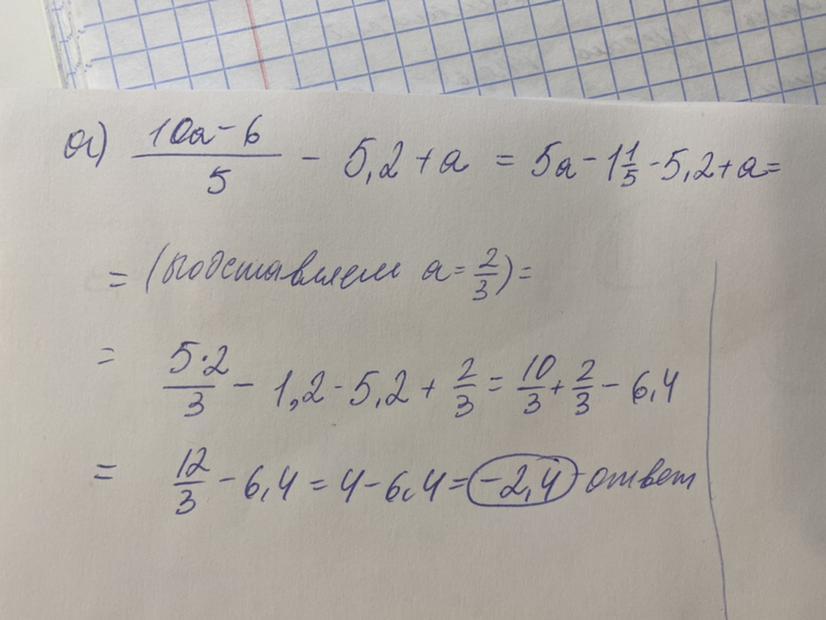 а) (10a-6)/5 - 5,2 + a = 5a - 1 1/5 - 5,2 + a =
= (подставляем a = 2/3) =
= (5·2)/3 - 1,2 - 5,2 + 2/3 = 10/3 + 2/3 - 6,4
= 12/3 - 6,4 = 4 - 6,4 = -2,4 - ответ